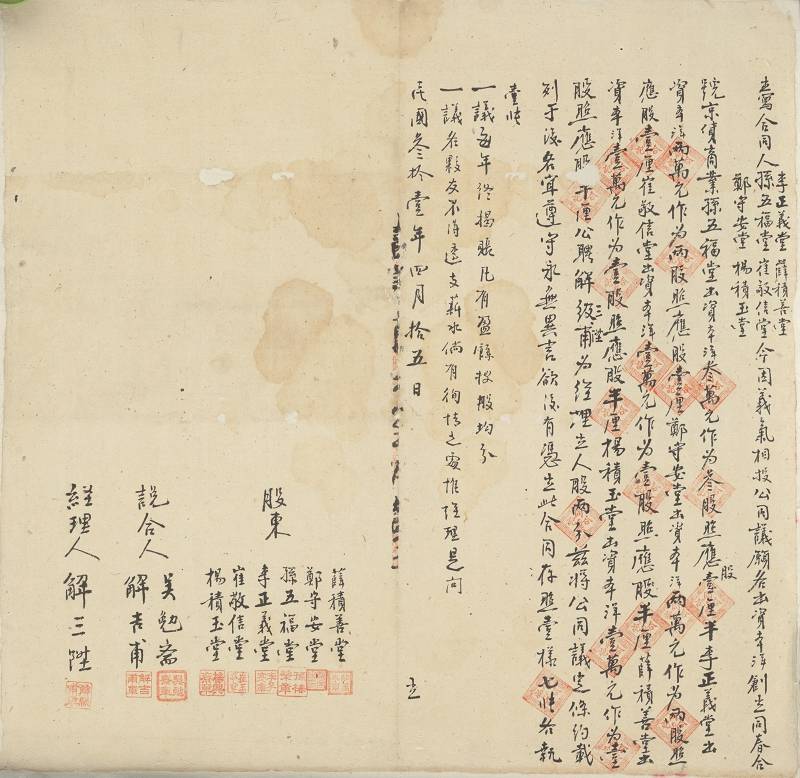 李正義堂 薛積善堂
立寫合同人孫五福堂崔敬信堂今因義氣相投公同議願各出資本洋創立同春合
鄭守安堂 楊積玉堂
號京貨商業孫五福堂出資本洋叁萬元作为叁股照應股壹厘半李正義堂出
資本洋兩萬元作为兩股照應股壹厘鄭守安堂出資本洋兩萬元作为兩股照
應股壹厘崔敬信堂出資本洋壹萬元作为壹股照應股半厘薛積善堂出
資本洋壹萬元作为壹股照應股半厘楊積玉堂出資本洋壹萬元作为壹
股照應股半厘公聘解三陞为經理立人股兩分茲將公同議定條約載
列于後各宜遵守永無異言欲後有憑立此合同存照壹樣七帋各執
壹帋
一議每年終揭賬凡有盈餘按股均分
一議各夥友不得透支薪水倘有徇情之處惟經理是问
民國叁拾壹年四月拾五日 立
股東
薛積善堂
鄭守安堂
孫五福堂
李正義堂
崔敬信堂
楊積玉堂
説合人
吴勉齋
解吉甫
経理人 解三陞